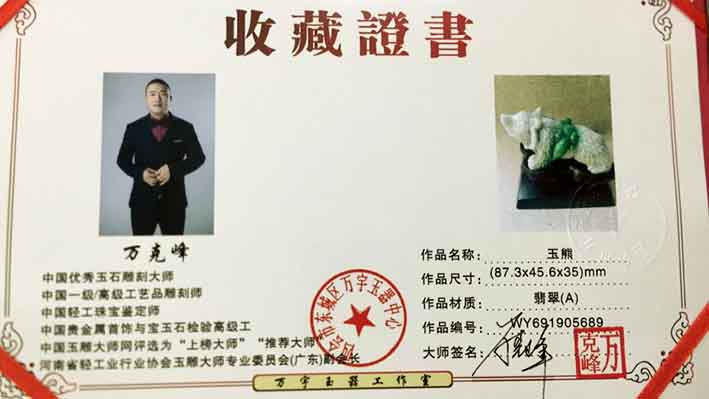 收藏證書
万克峰
中国优秀玉石雕刻大师
中国一级/高级工艺品雕刻师
中国轻工珠宝鉴定师
中国贵金属首饰与宝玉石检验高级工
中国玉雕大师网评选为“上榜大师”“推荐大师”
河南省轻工业行业协会玉雕大师专业委员会(广东)副会长
会市东城区万宇玉器中心
作品名称： 玉熊
作品尺寸： (87.3x45.6x35)mm
作品材质： 翡翠(A)
作品编号： WY691905689
大师签名：
万克峰
万宇玉器工作室